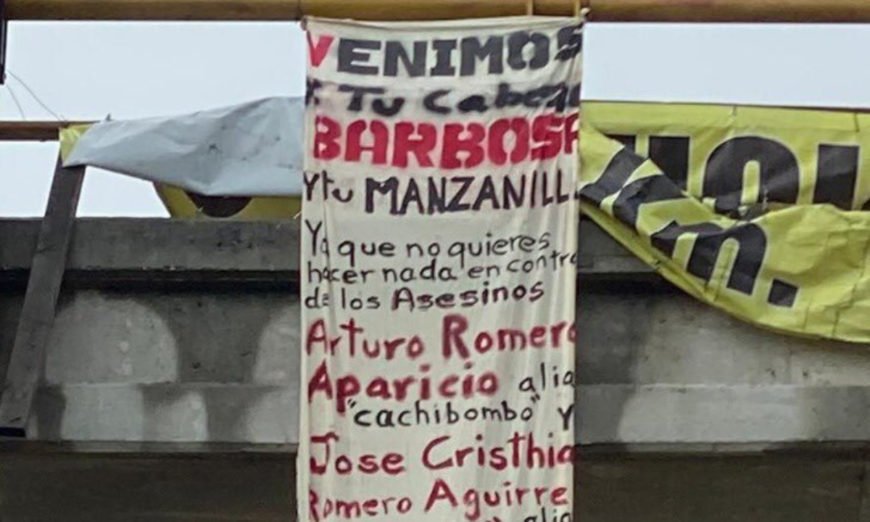 VENIMOS
X Tu Cabeza
BARBOSA
Y tu MANZANILL
Ya que no quieres
hacer nada en contra
de los Asesinos
Arturo Romero
Aparicio alia
"cachibombo" Y
Jose Cristhia
Romero Aguirre
alia